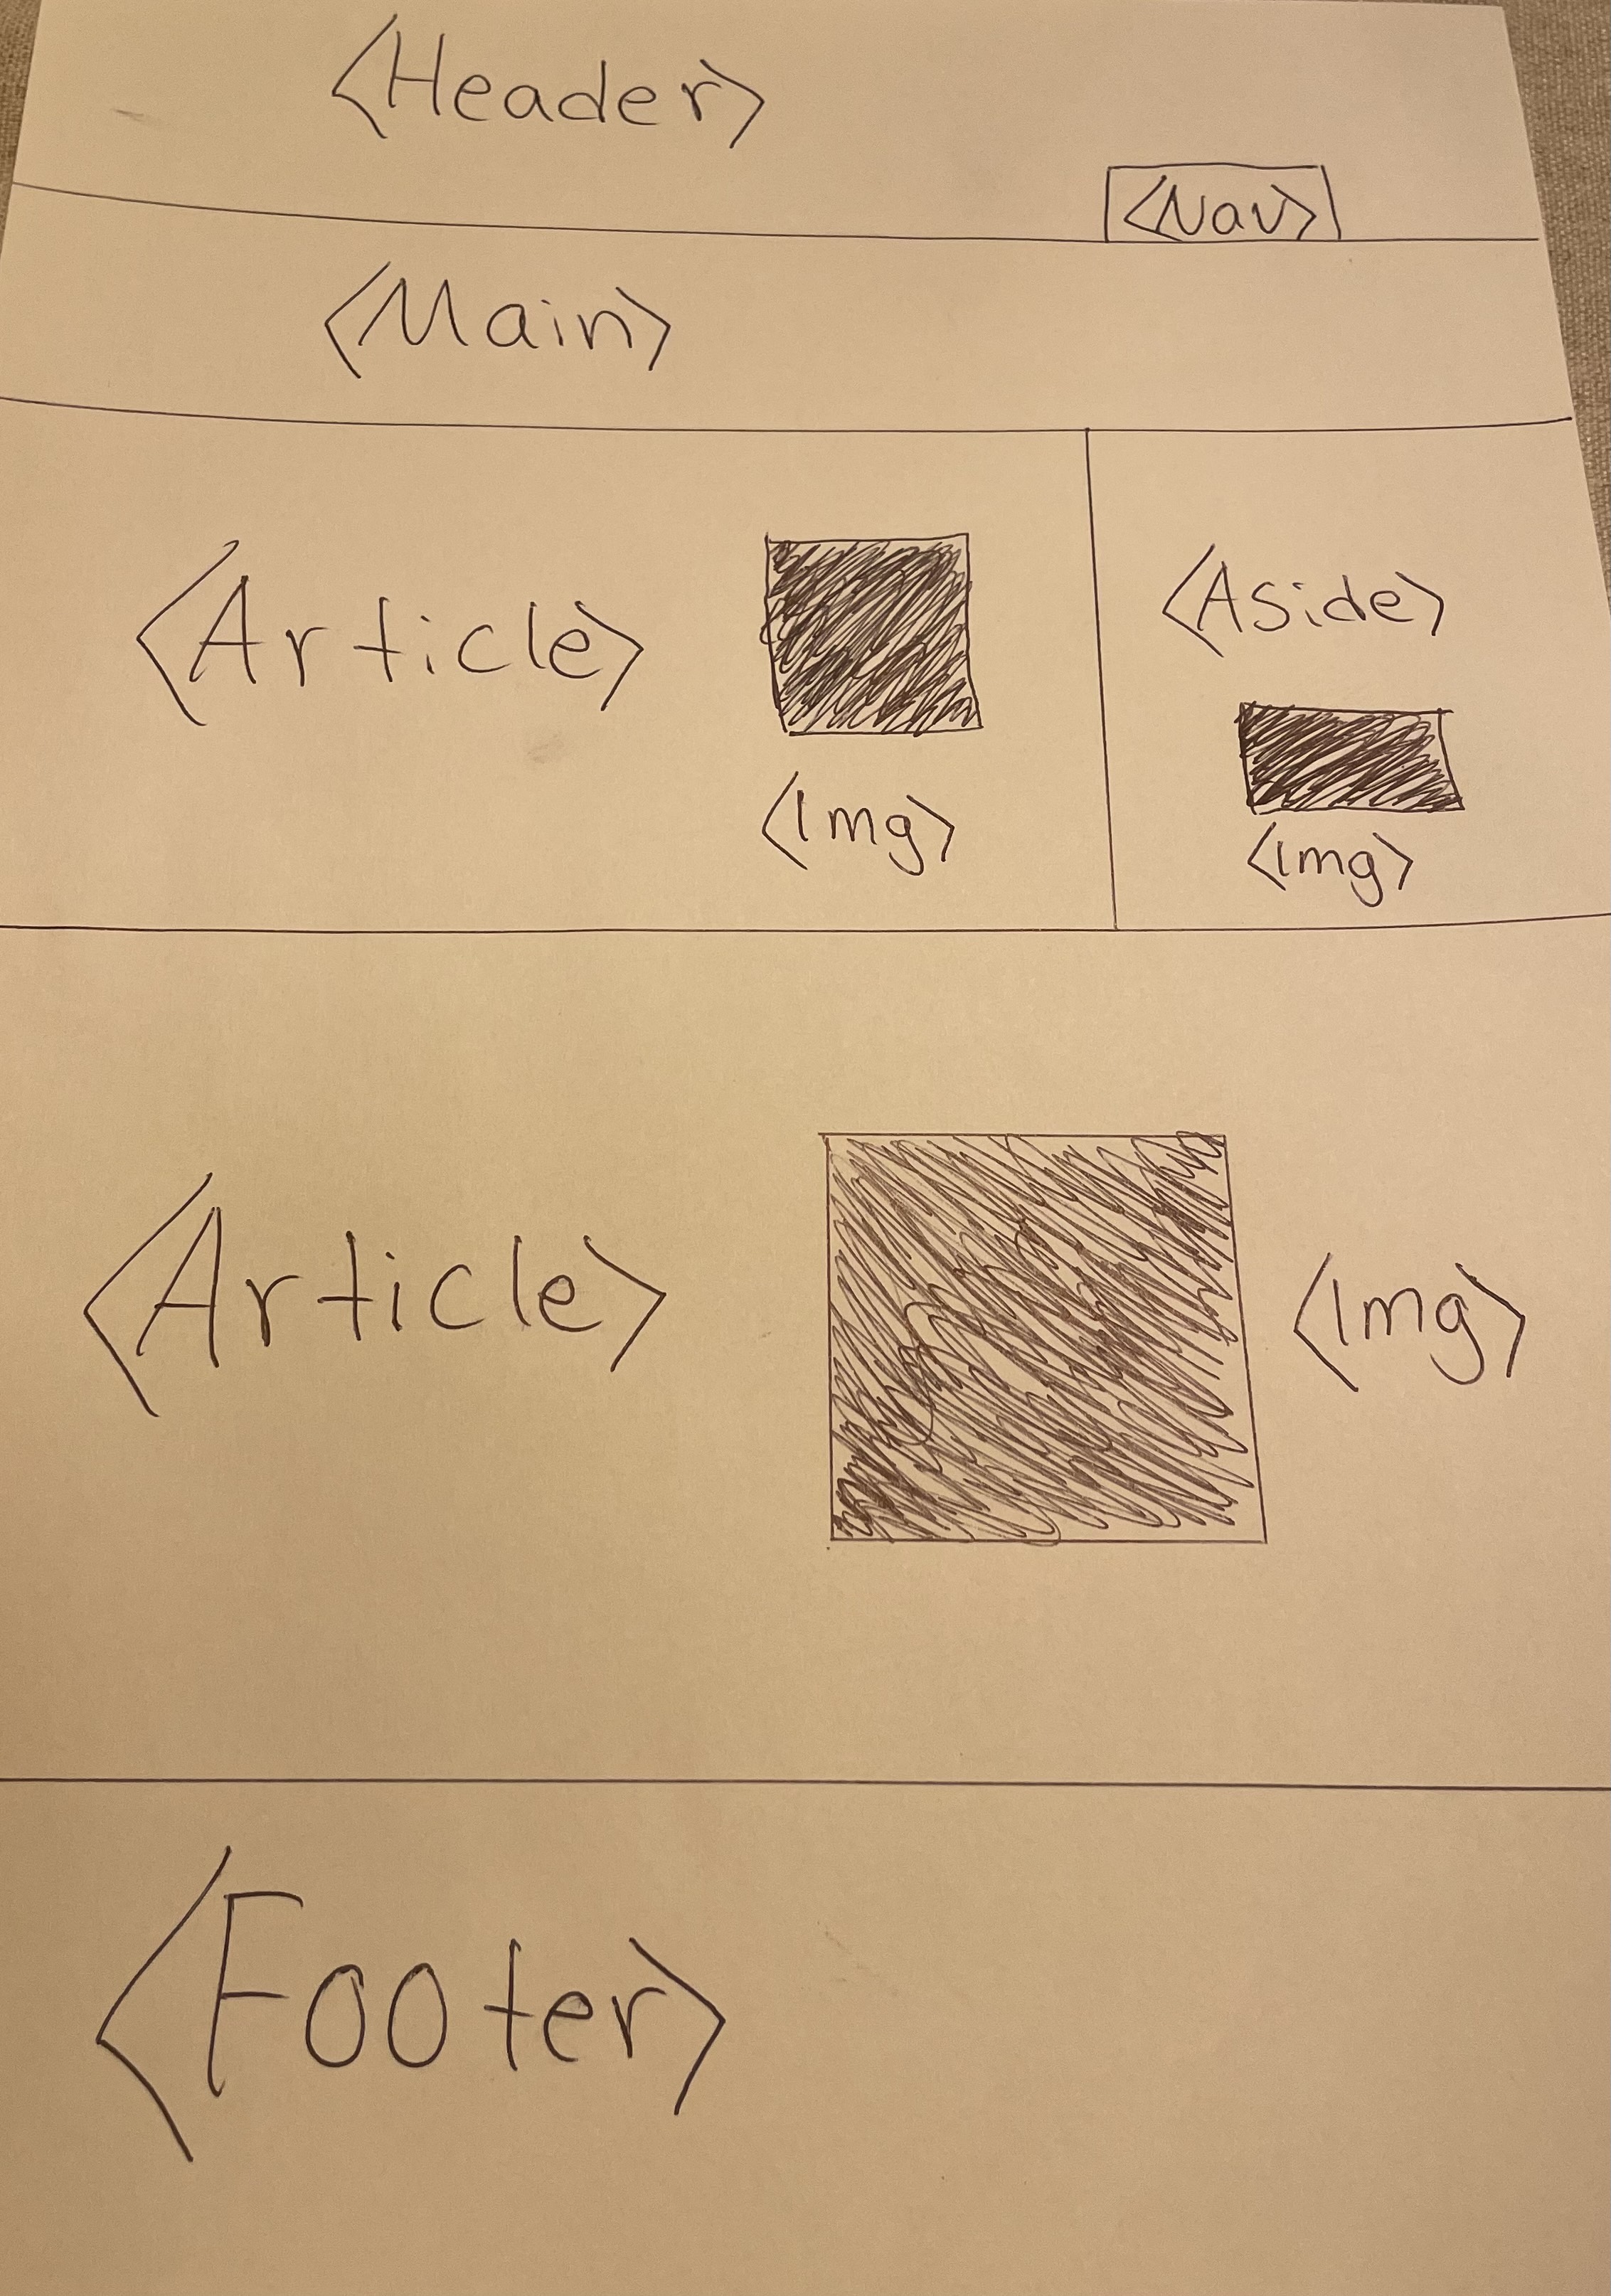 <Header>
<Nav>
<Main>
<Article>
<Img>
<Aside>
<Img>
<Article>
<Img>
<Footer>